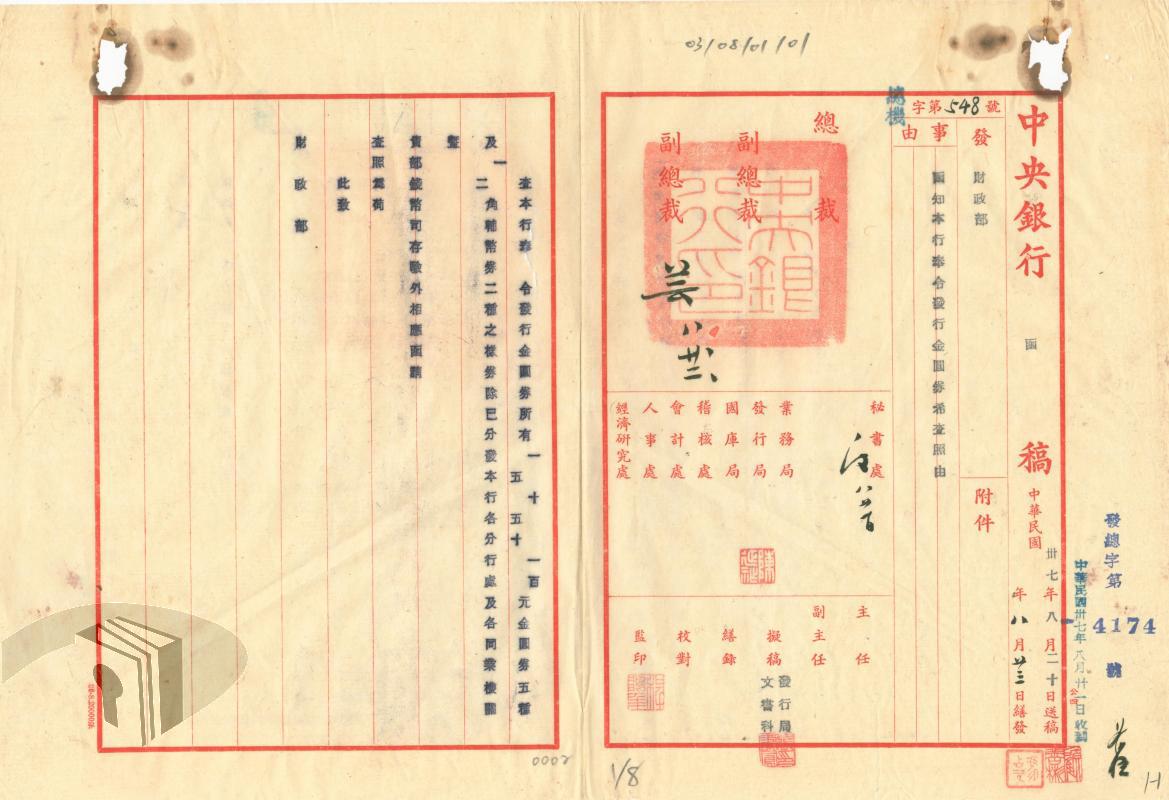 03/08/01/01
總機
字第548號
中央銀行 函 稿
中華民國
卅七年八月二十日送稿
年八月廿三日繕發
發總字第 4174 號
中華民國卅七年八月廿一日收到
發
財政部
附件
事由
函知本行奉令發行金圓券希查照由
總裁
副總裁
副總裁
中央銀行之印
秘書處
業務局
發行局
國庫局
稽核處
會計處
人事處
經濟研究處
主任
副主任
擬稿
發行局
文書科
繕錄
校對
監印
查本行奉 令發行金圓券所有一 五 十 五十 一百元金圓券五種
及一 二角輔幣券二種之樣券除已分發本行各分行處及各同業機關
暨
貴部錢幣司存驗外相應函請
查照為荷
此致
財政部
0002
1/8
H